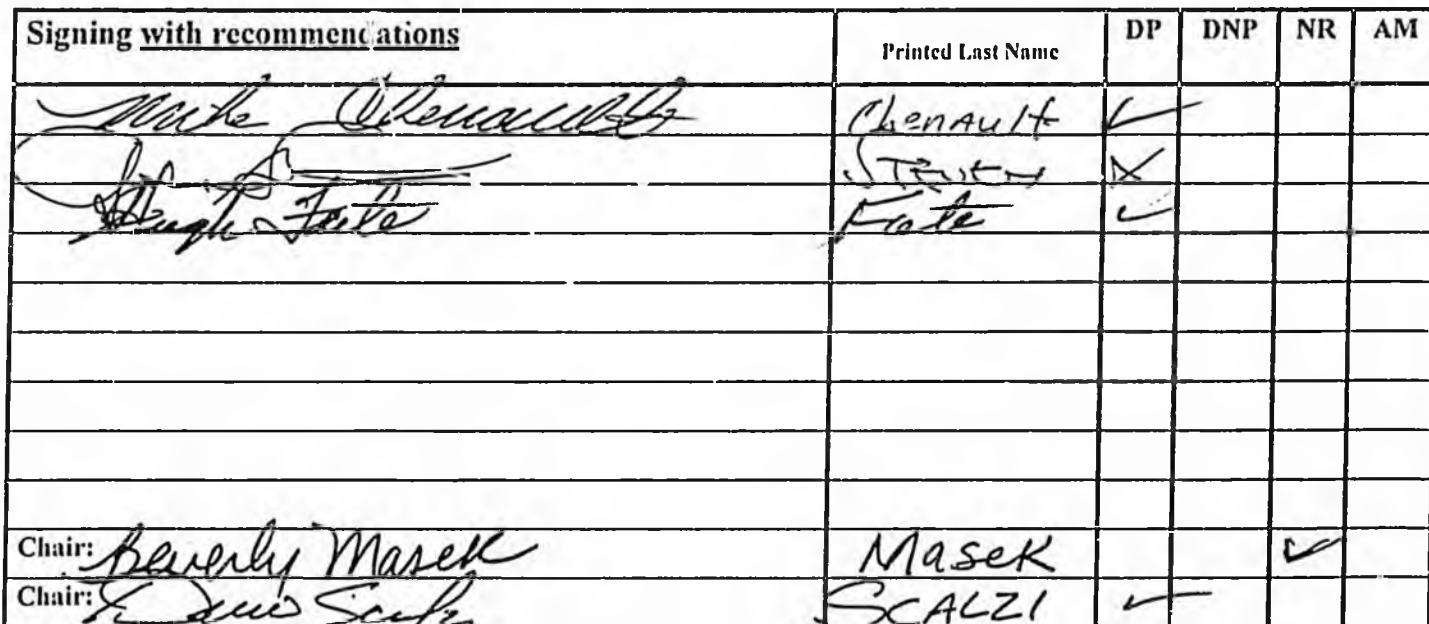 Signing with recommendations Printed Last Name DP DNP NR AM
Mike Chenault Chenault ✓
X
Hugh Fate Fate ✓
Chair: Beverly Masek Masek ✓
Chair: Scalzi SCALZI ✓